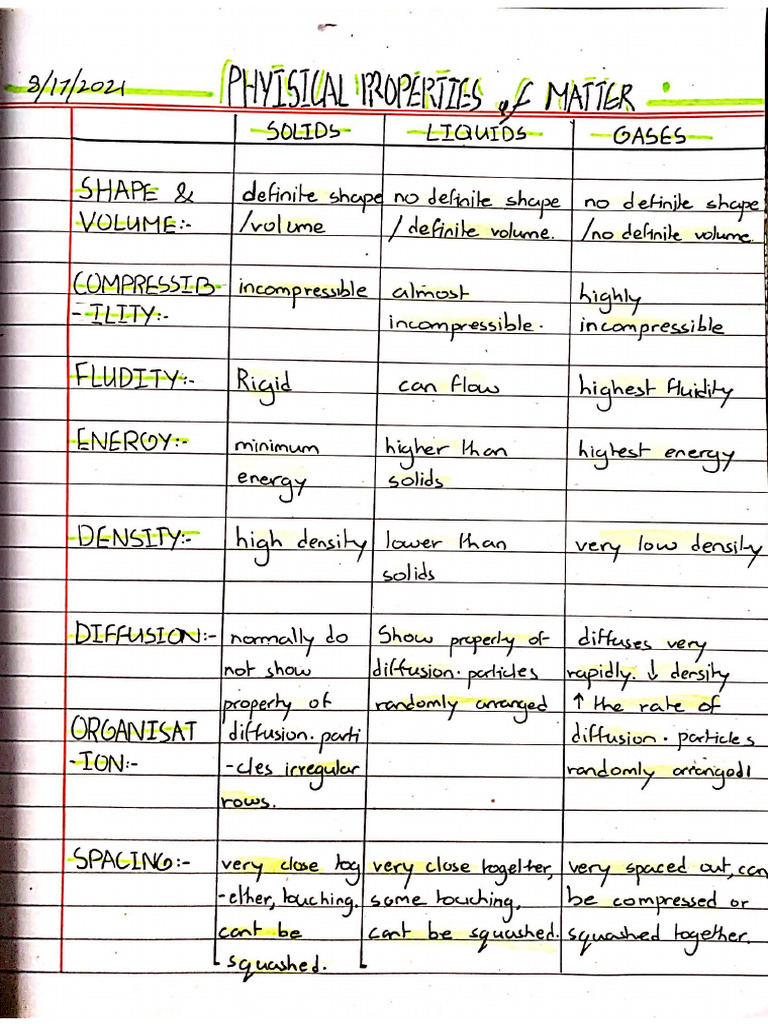 8/17/2021 PHYISICAL PROPERTIES of MATTER
SOLIDS LIQUIDS GASES
SHAPE & definite shape no definite shape no definite shape
VOLUME:- /volume / definite volume. /no definite volume.
COMPRESSIB- incompressible almost highly
-ILITY:- incompressible. incompressible
FLUDITY:- Rigid can flow highest fluidity
ENERGY:- minimum higher than highest energy
energy solids
DENSITY:- high density lower than very low density
solids
DIFFUSION:- normally do Show property of diffuses very
not show diffusion. particles rapidly. ↓ density
property of randomly arranged ↑ the rate of
ORGANISAT diffusion. parti diffusion. particles
-ION:- -cles irregular randomly arranged
rows.
SPACING:- very close tog very close together, very spaced out, can
-ether, touching. some touching, be compressed or
cant be cant be squashed. squashed together.
squashed.